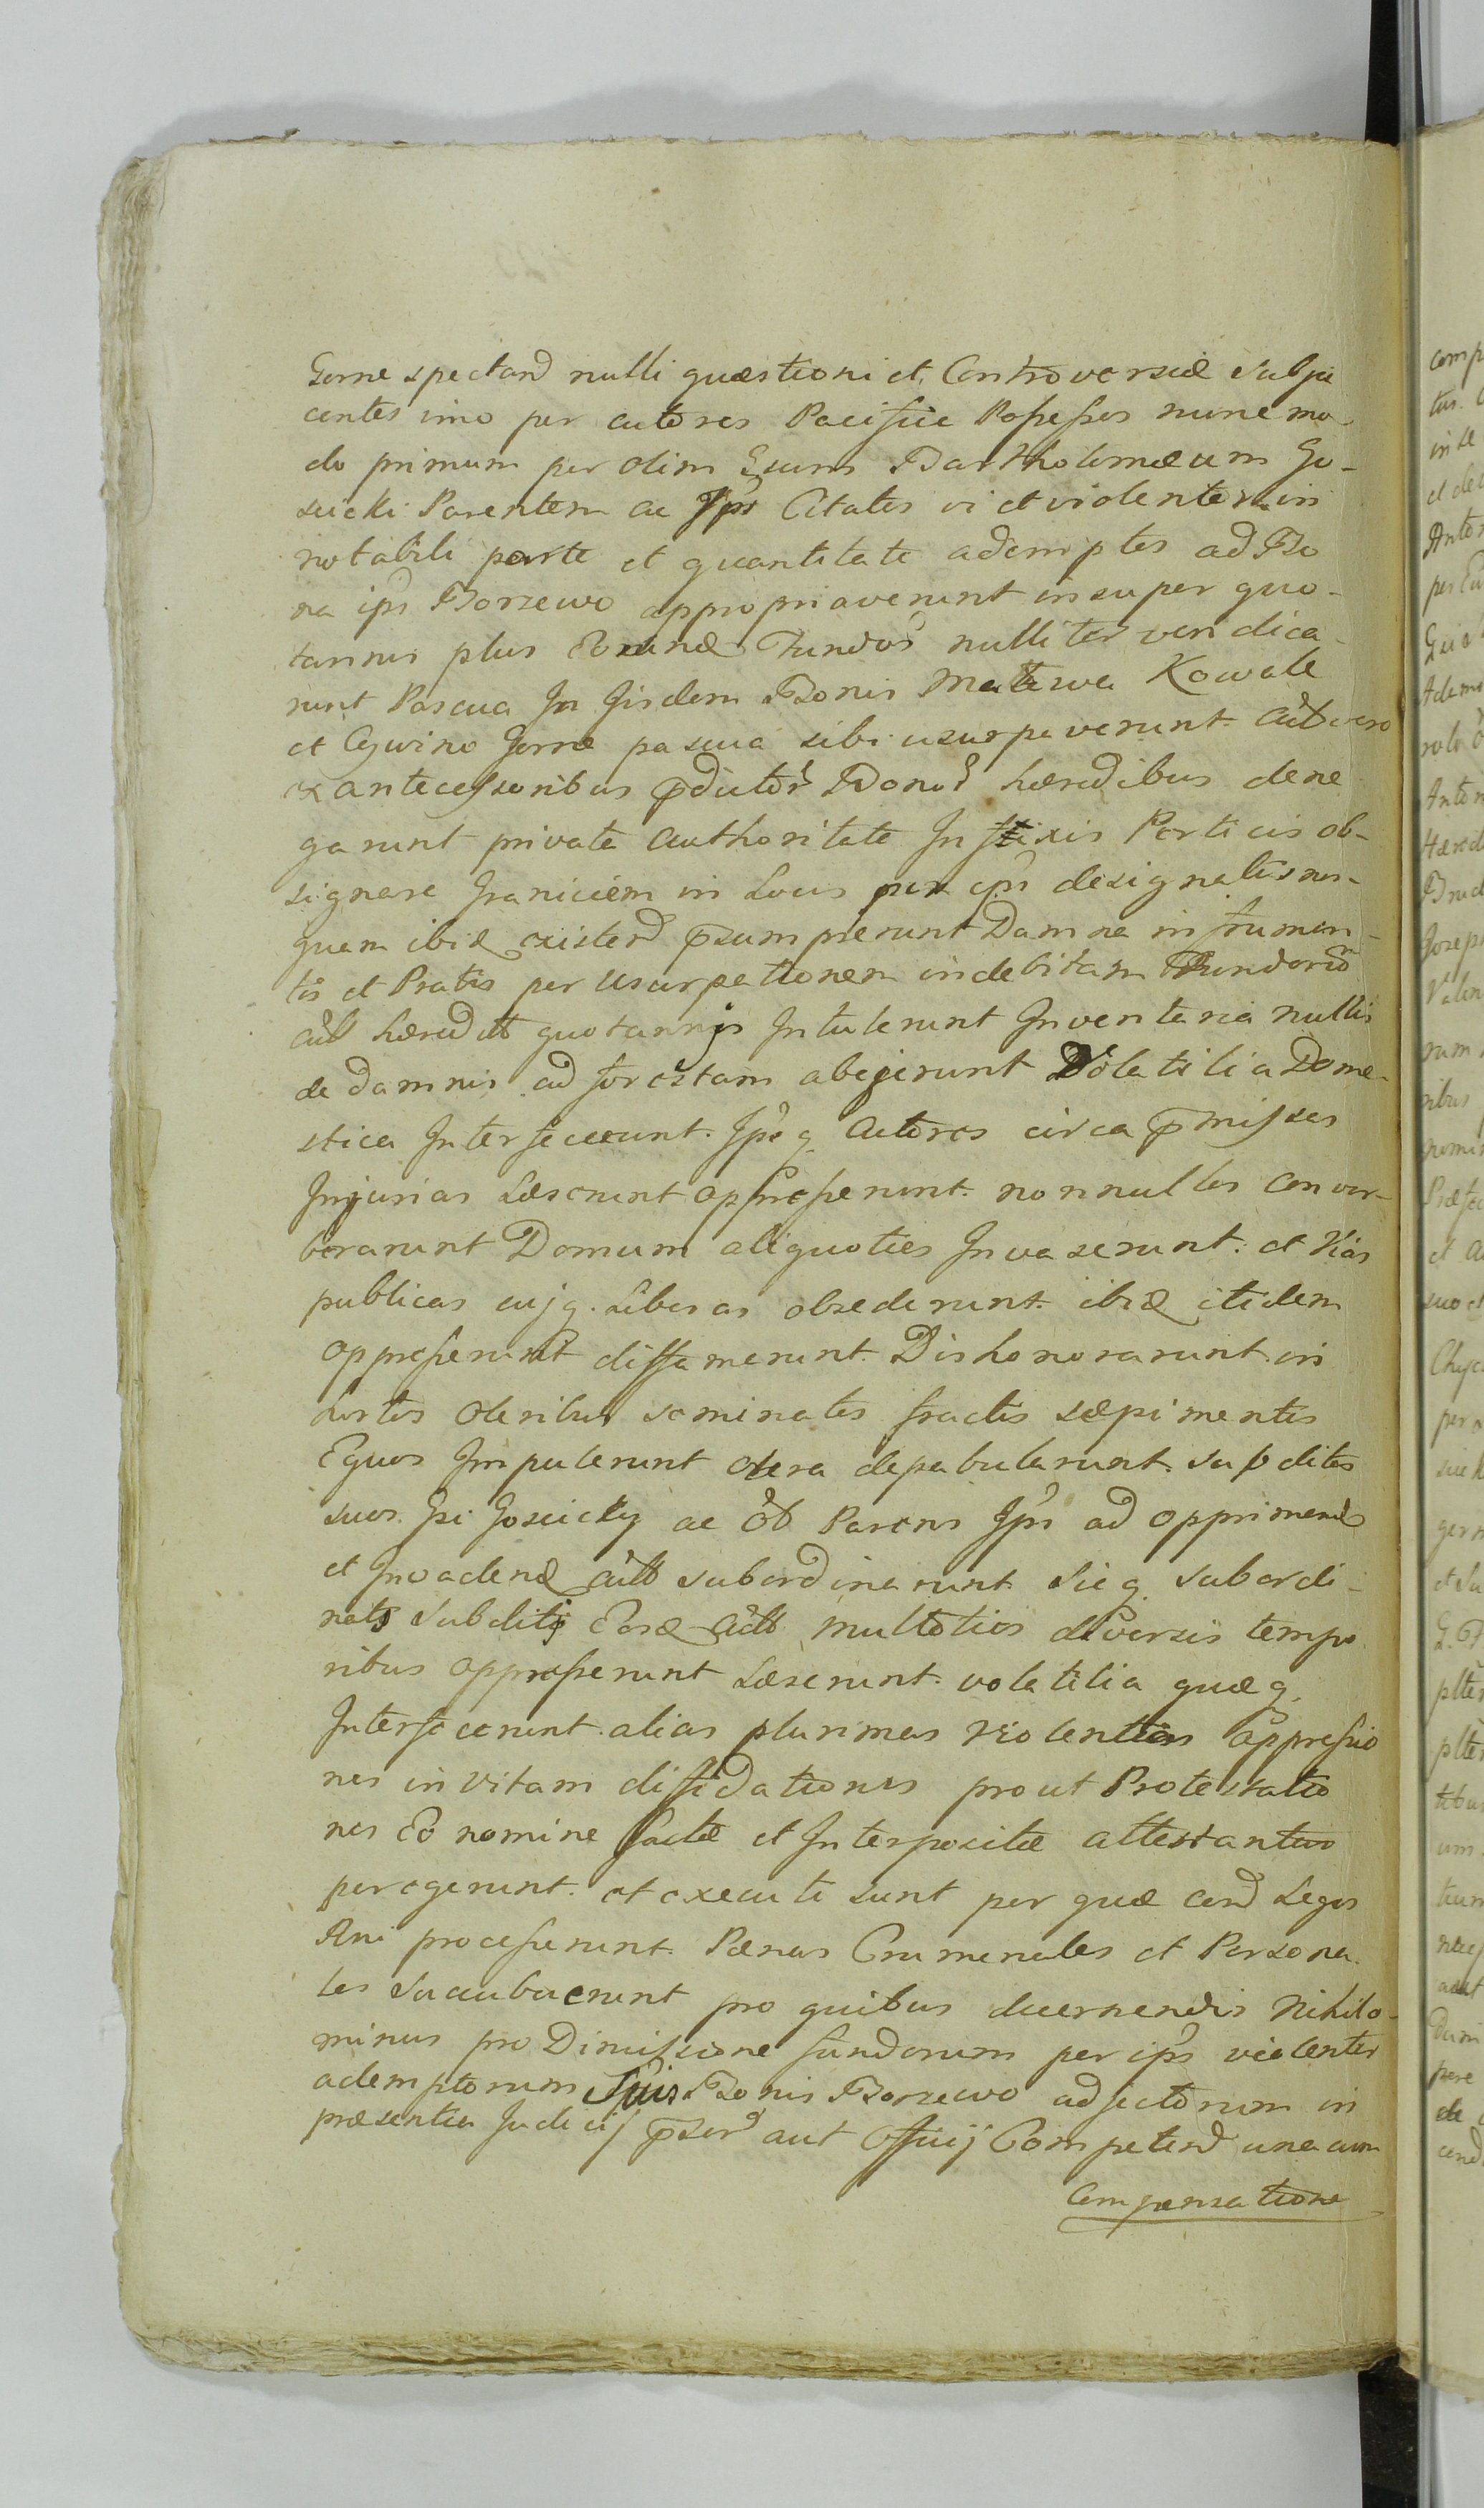 Gorne spectand nulli quæstioni et Controversiæ subja
centes imo per actores Pacifice Possessos nunc mo
do primum per olim Gsum Bartholomæum Go-
scicki Parentem ac Ips Citatos vi et violenter in
notabili parte et quantitate ademptos ad Bo
na ips Borzewo appropriaverunt insuper quo-
tannis plus Fundos nulliter vendica-
runt Pascua In Iisdem Bonis Malewa Kowale
et Cywino Gorne pascua sibi usurpaverunt vero
ex antecessoribus pdictor Bonor hæredibus dene
garunt privata Authoritate Infixis Perticis ob-
signare Graniciem in Locis per ips designatis nus-
quam ibid existend psumpserunt Damna in frumen-
tis et Pratis per Usurpationem indebitam Fundorum
hæredit quotannis Intulerunt Inventaria nullis
de damnis ad forestam abegerunt Volatilia Dome-
stica Interfecerunt. Ipsosq Actores circa pmissas
Injurias Læserunt oppresserunt. nonnullos conver-
berarunt Domum aliquoties Invaserunt: et Vias
publicas cujq. Liberas obsederunt. ibid itidem
oppresserunt diffamerunt. Dishonorarunt in
hortos oleribus seminatos fractis sæpimentis
Equos Impulerunt olera depabularunt. subditos
suos Gsi Goscicky ac Parens Ips ad opprimend
et Invadend subordinarunt. Sicq subordi-
nats subditj multoties diversis tempo
ribus oppresserunt Læserunt. volatilia quæq.
Interfecerunt. alias plurimas violentias oppressio
nes in vitam diffidationes prout Protestatio
nes Eo nomine factæ et Interpositæ attestantur
peregerunt. et executi sunt per quæ cend Leges
Rni processerunt. Pænas Crumenales et Persona-
les Succubuerunt pro quibus decernendis Nihilo-
minus pro Dimissione fundorum per ips violenter
ademptorum Bonis Borzewo adjectorum in
præsentia Judicij pser aut Officij Competend una cum
Compensatione